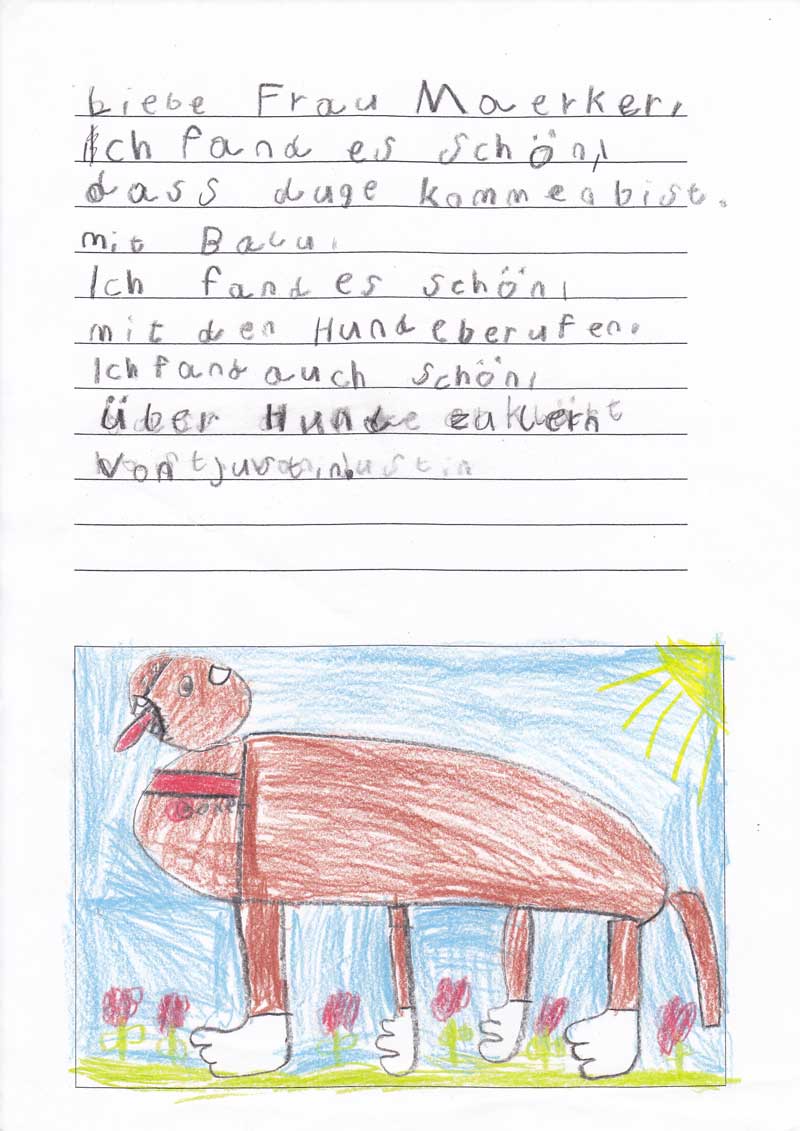 Liebe Frau Maerker,
Ich fand es schön,
dass duge kommen bist.
mit Balu.
Ich fand es schön,
mit den Hundeberufen.
Ich fand auch schön,
über Hunde
von